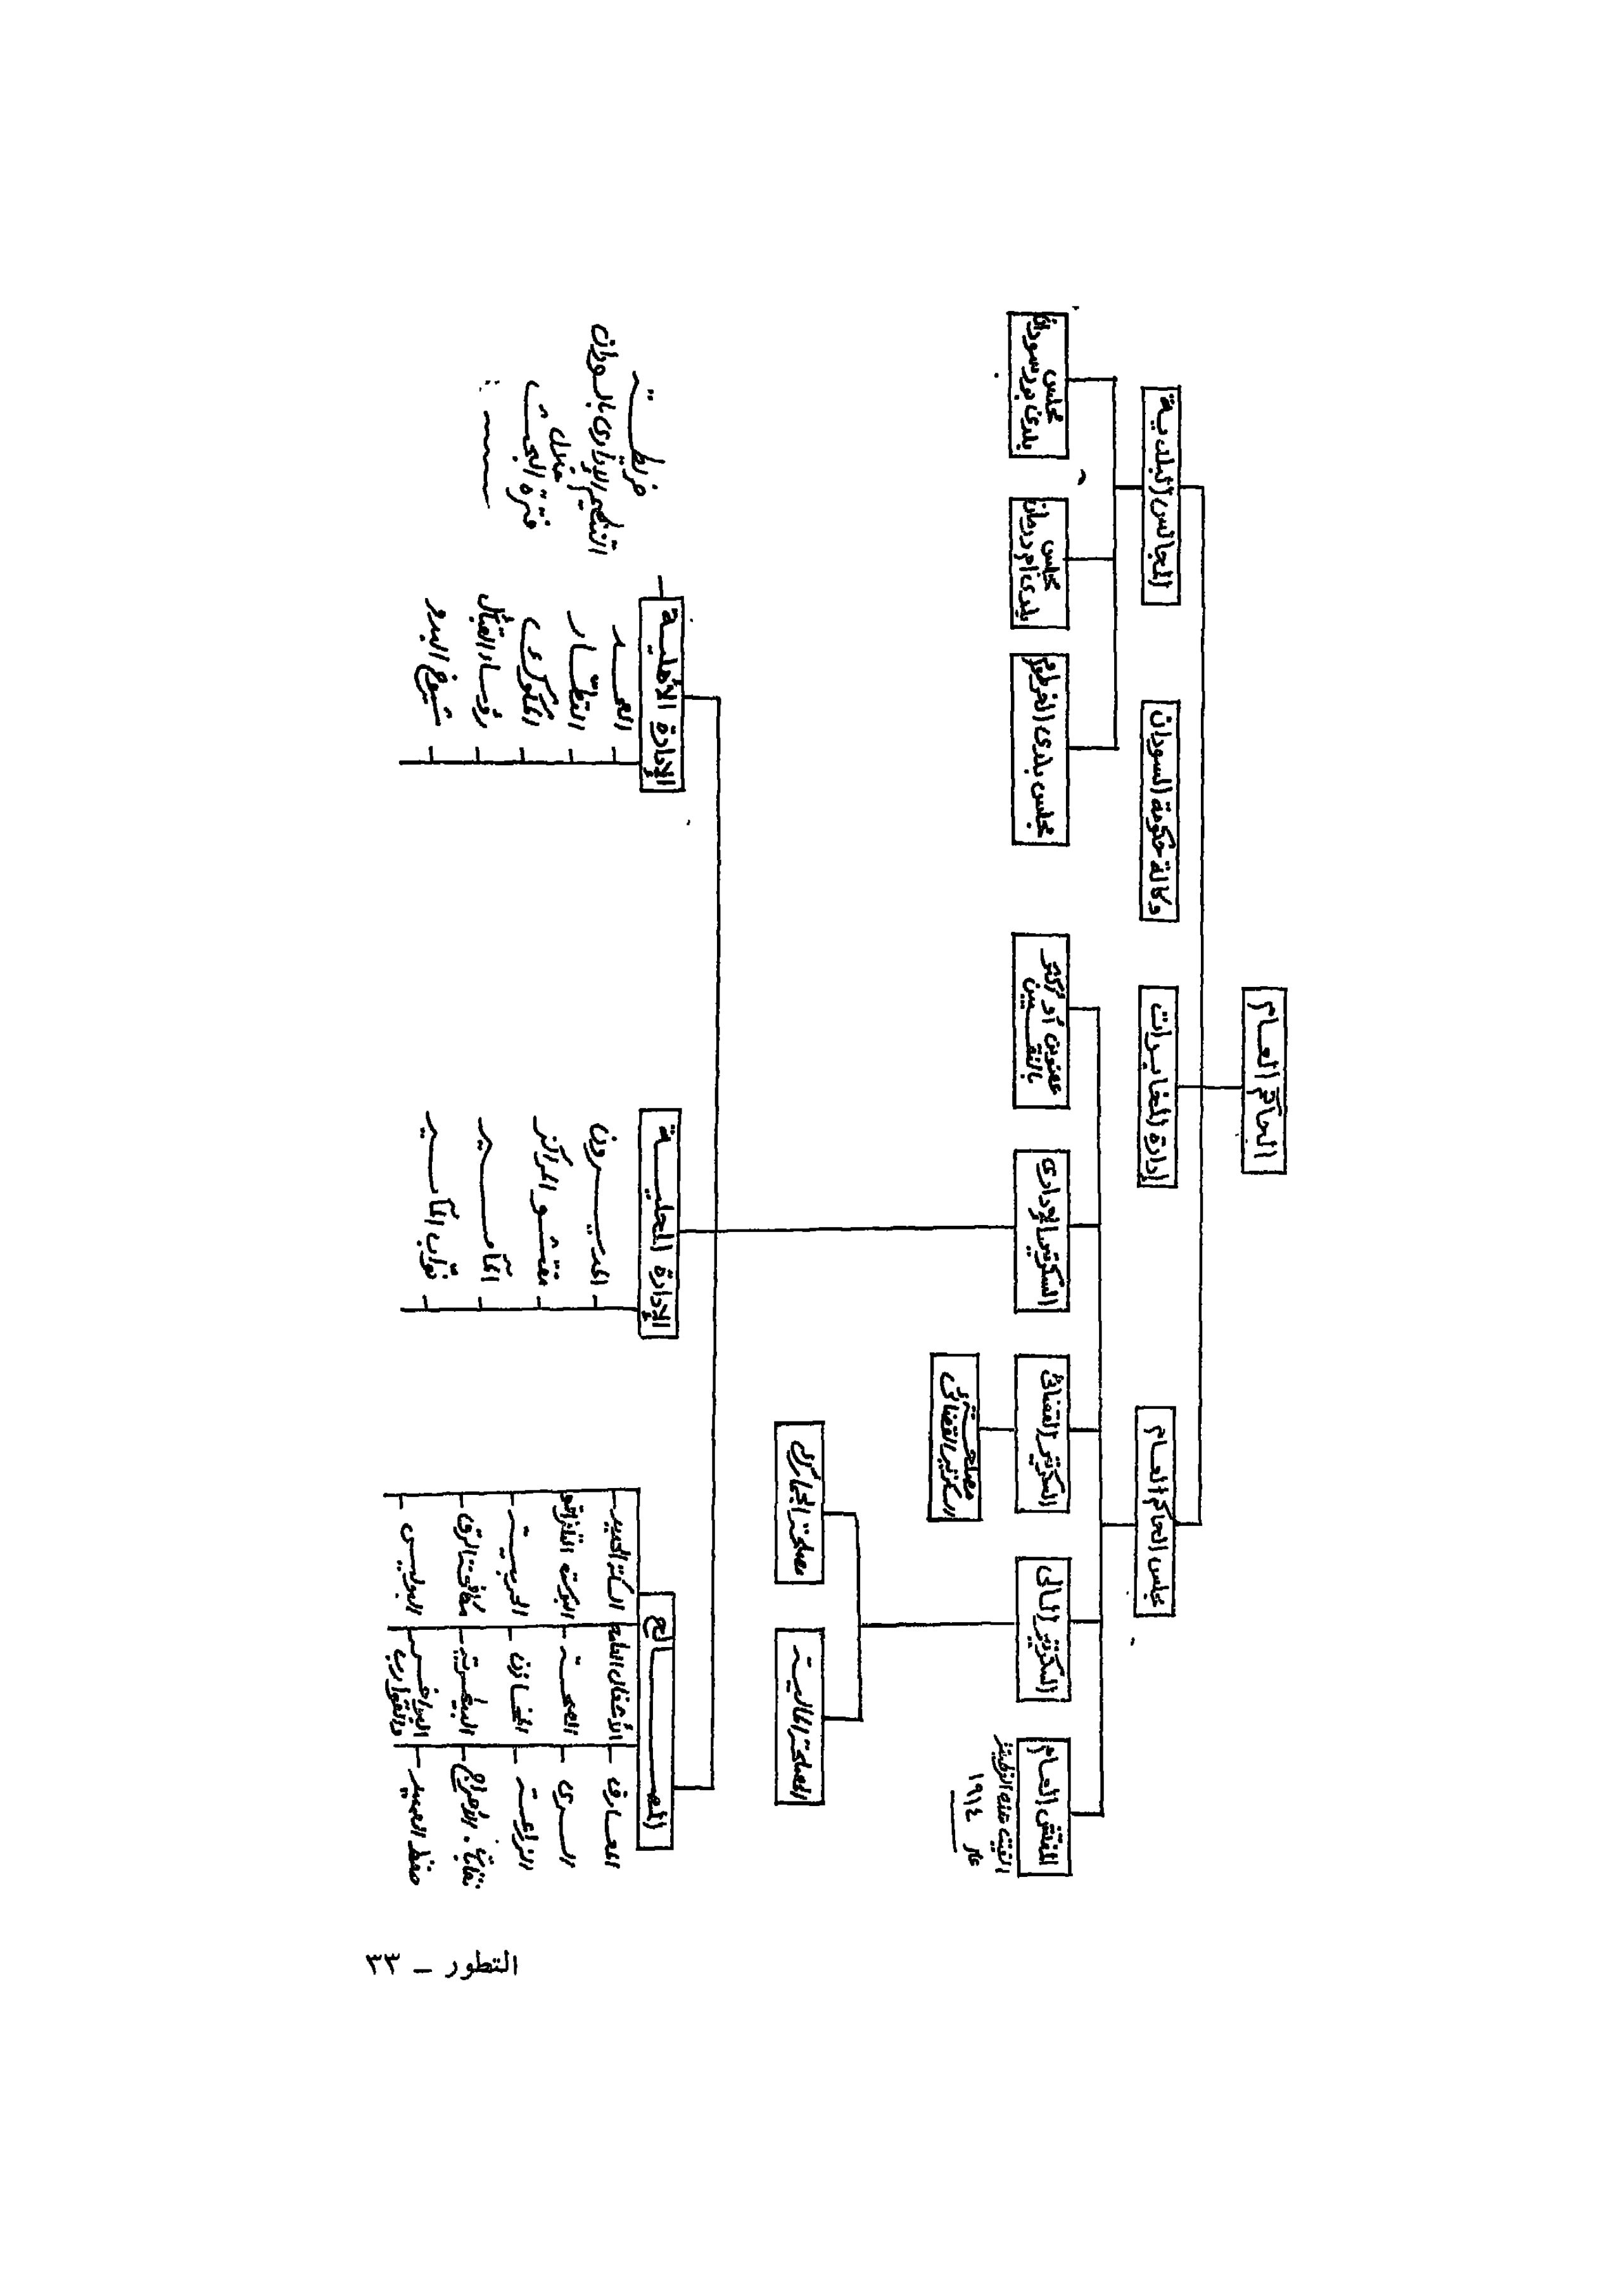 الحاكم العام
مجلس الحاكم العام
إدارة المخابرات
وكالة حكومة السودان
المجالس البلدية
المفتش العام
ألغيت هذه الوظيفة
عام ١٩١٤
السكرتير المالى
السكرتير القضائى
السكرتير الإدارى
عضوين أو أكثر
بالتعيين
مجلس بلدى الخرطوم
مجلس
بلدى أم درمان
مجلس
بلدى بورسودان
مصلحة
السكرتير القضائى
المصلحة المالية
مصلحة الجمارك
المصالح
المعارف
الرى
الزراعة
الغابات
حفظ الصيد
الأشغال العامة
الصحة
المخازن
البيطرية
البواخر
والقوارب
السكة الحديد
البوستة والتلغراف
الحربية
مكافحة الرق
البوليس
الإدارة المحلية
المديرون
مفتشو المراكز
المآمير
نواب المآمير
الإدارة الأهلية
العمد
النظار
المكوك
رؤساء القبائل
شيوخ البدو
خريطة
التنظيم الإدارى بالسودان
خلال
فترة البحث
التطور – ٣٣